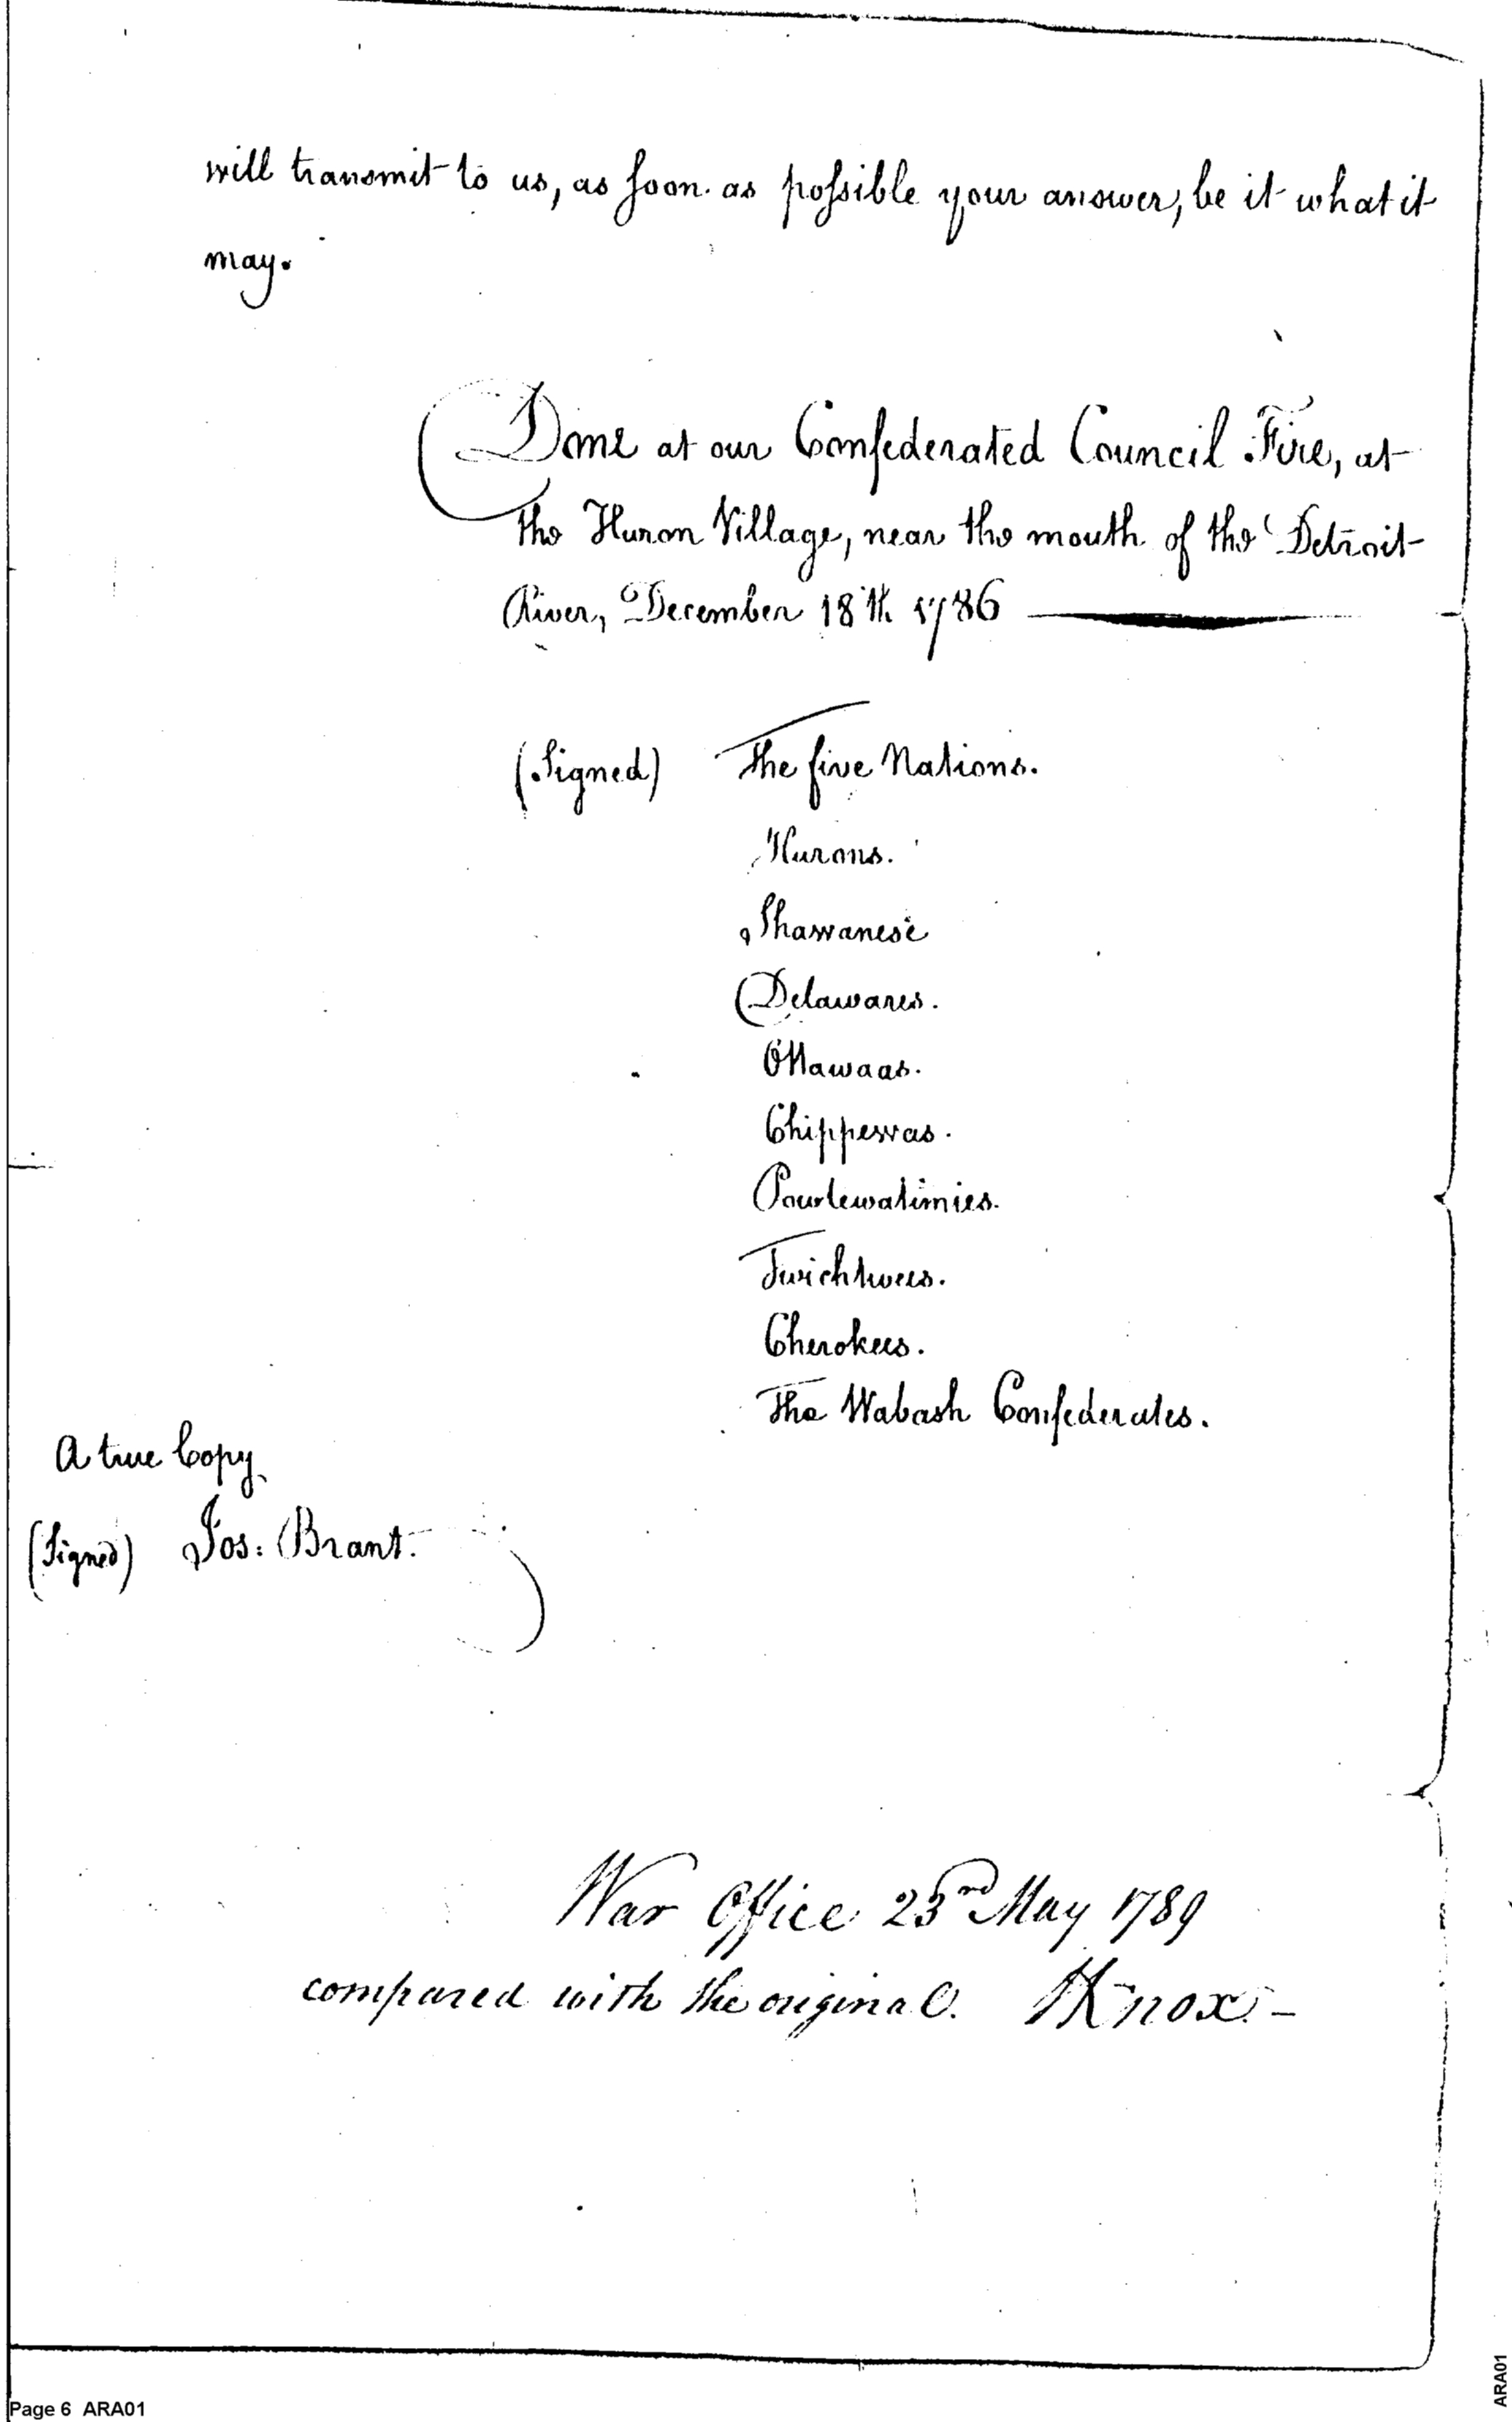 will transmit to us, as soon as possible your answer, be it what it
may.
Done at our Confederated Council Fire, at
the Huron Village, near the mouth of the Detroit
River, December 18th 1786
(Signed) The five Nations.
Hurons.
Shawanese
Delawares.
Ottawaas.
Chippewas.
Powtewatimies.
Twichtwees.
Cherokees.
The Wabash Confederates.
A true Copy
(Signed) Jos: Brant.
War Office 23rd May 1789
compared with the original. HKnox. -
Page 6 ARA01
ARA01